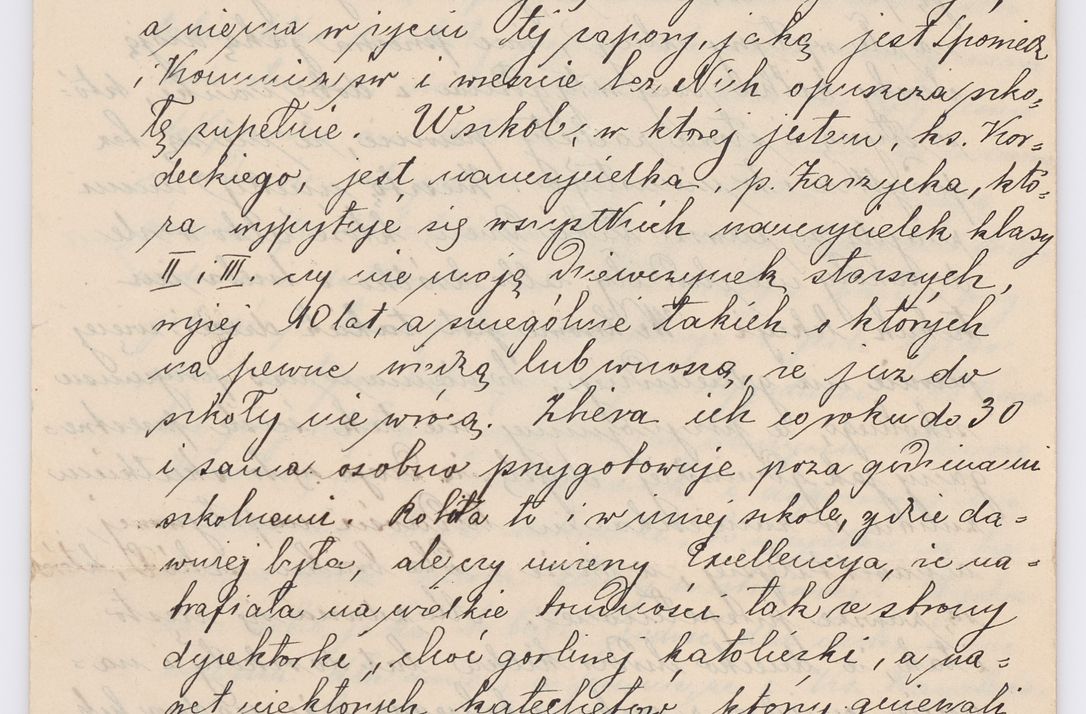 a niema w życiu tej zapory, jaką jest Spowiedź
i Komunia św i wreście bez Nich opuszcza szko-
łę zupełnie. W szkole, w której jestem, ks. Kor-
deckiego, jest nauczycielka, p. Zarzycka, któ-
ra wypytuje się wszystkich nauczycielek klasy
II i III. czy nie mają dziewczynek starszych,
wyżej 10 lat, a szczególnie takich o których
na pewne wiedzą lub wnoszą, że już do
szkoły nie wrócą. Zbiera ich co roku do 30
i sama osobno przygotowuje poza godzinami
szkolnemi. Robiła to i w innej szkole, gdzie da-
wniej była, ale czy uwierzy Excellencya, że na-
trafiała na wielkie trudności tak ze strony
dyrektorki, choć gorliwej katoliczki, a na-
wet niektórych katechetów, którzy gniewali